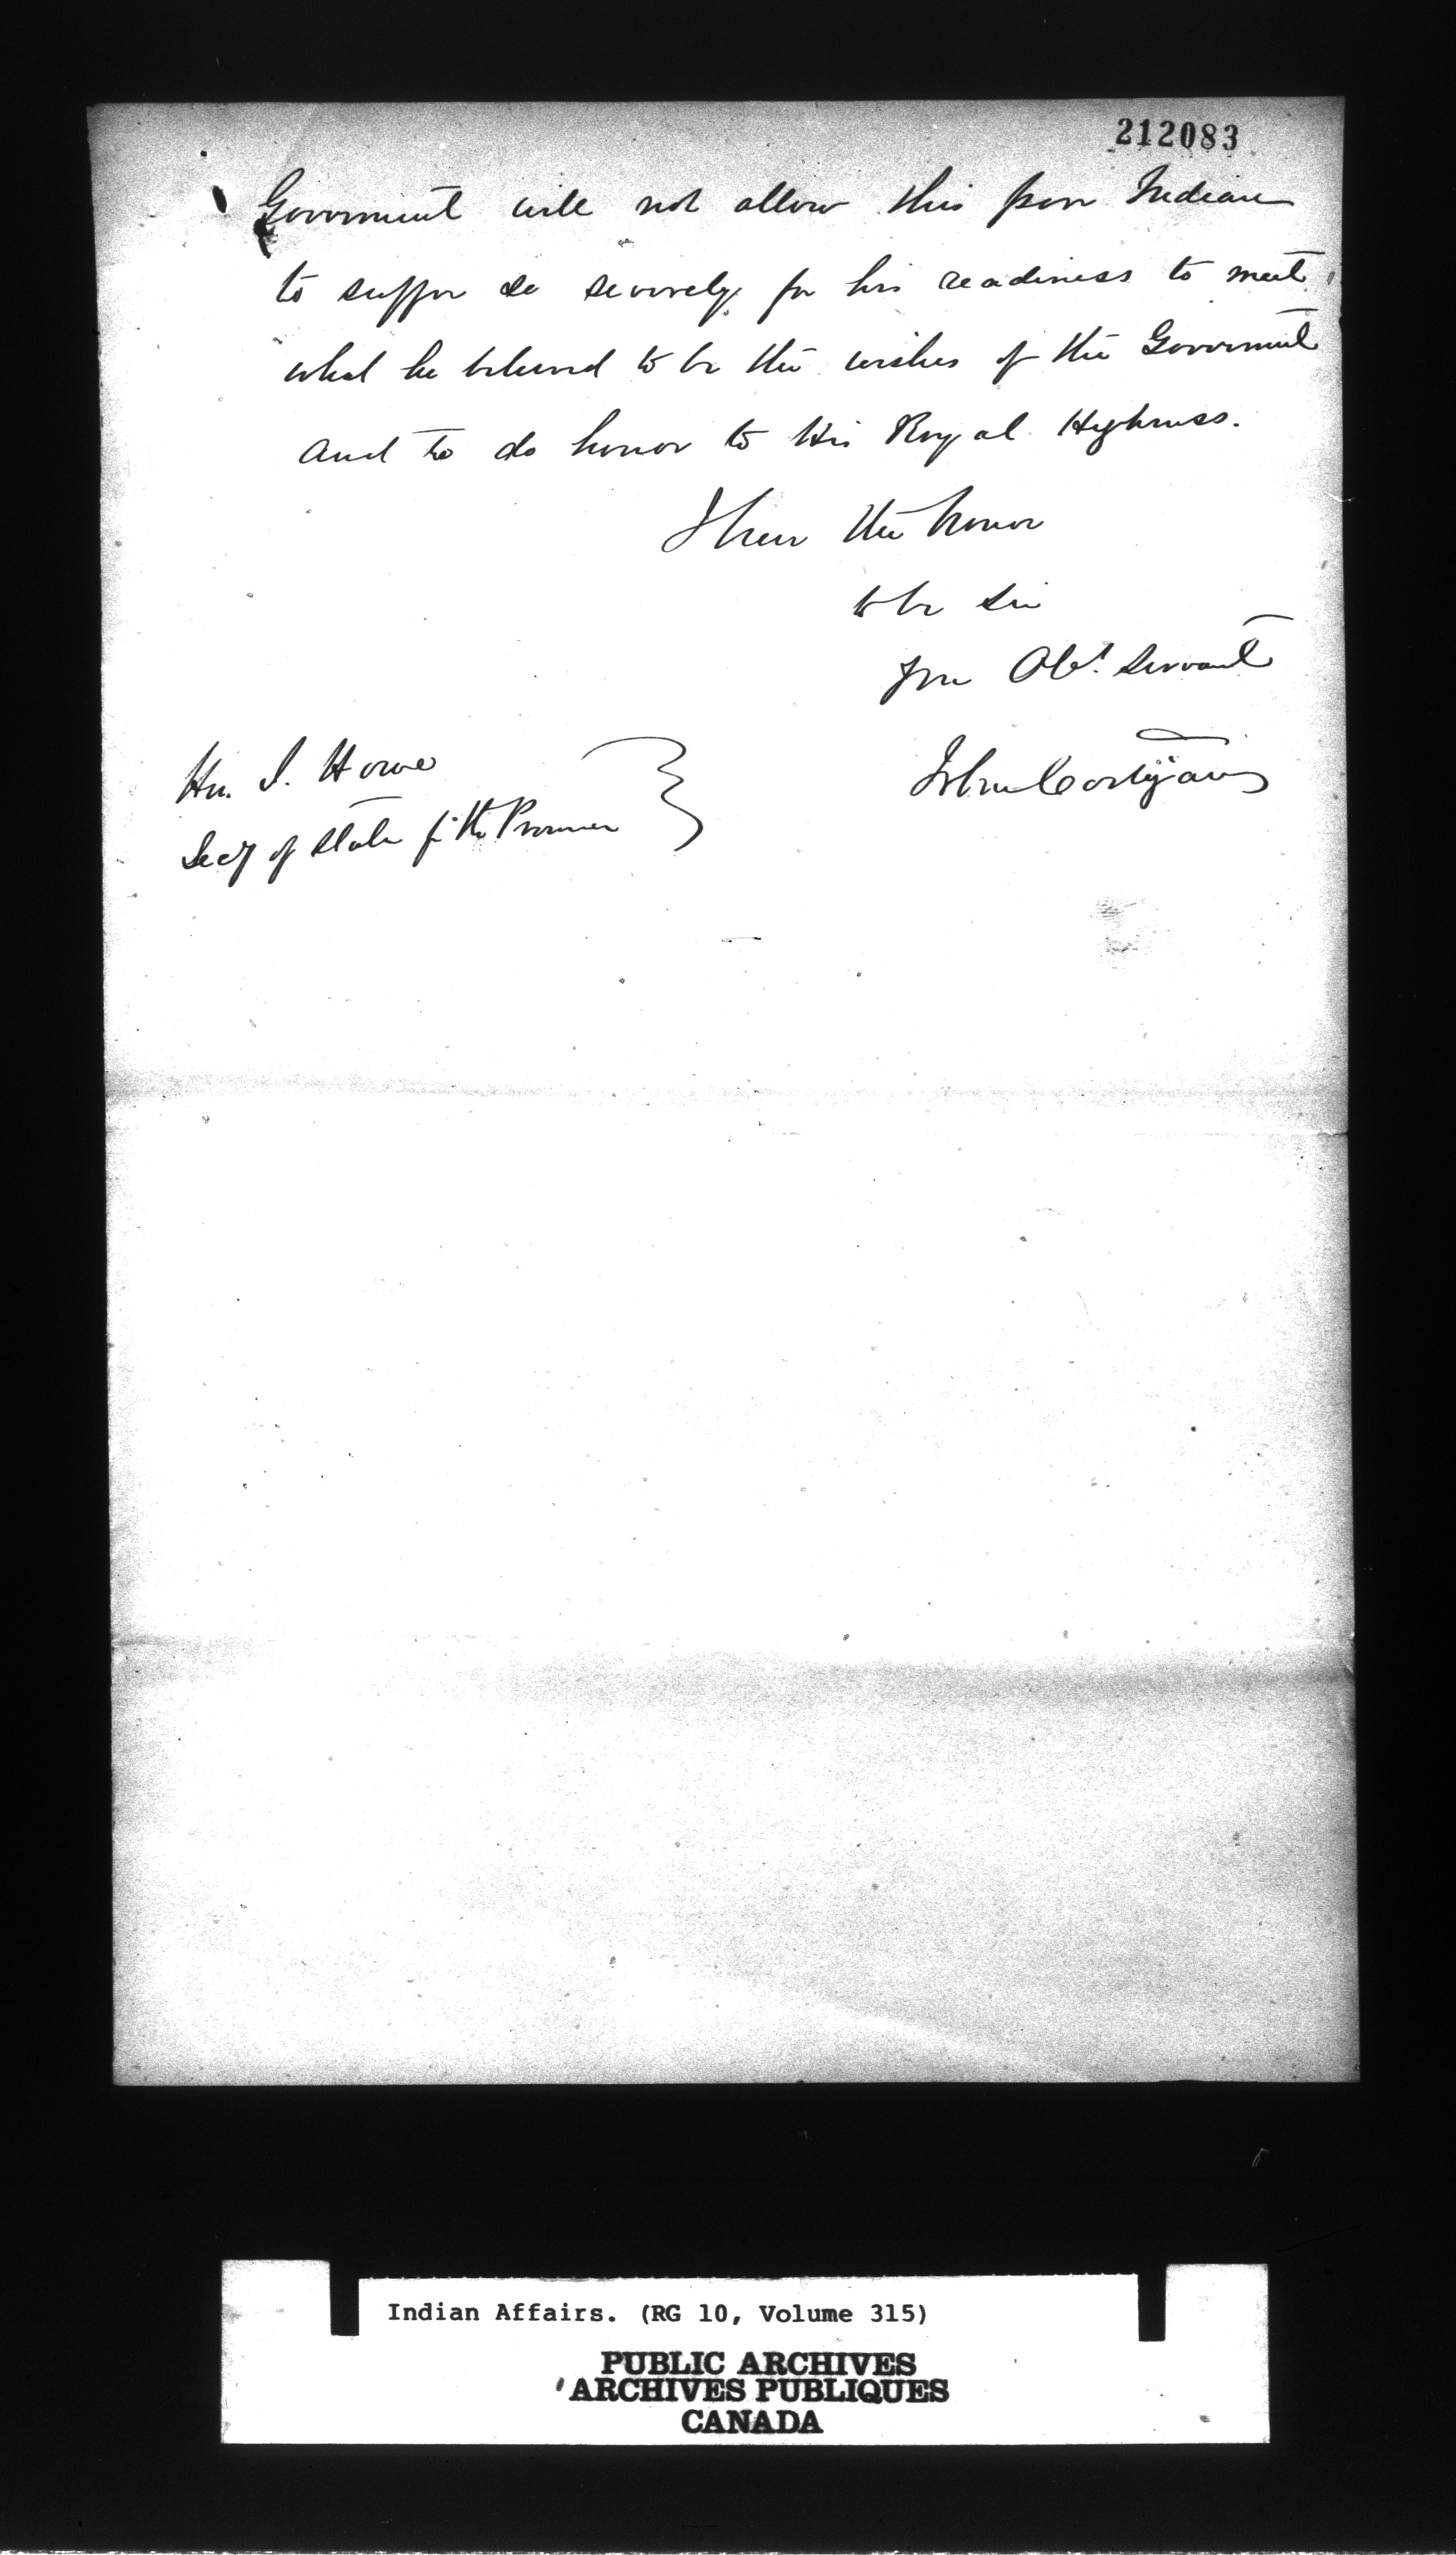 212083
Government will not allow this poor Indian
to suffer so severely for his readiness to meet
what he believed to be the wishes of the Government
and to do honor to His Royal Highness.
I have the honor
to be Sir
Your Obt. Servant
John Costigan
Hon. J. Howe
Secy of State for the Provinces
Indian Affairs. (RG 10, Volume 315)
PUBLIC ARCHIVES
ARCHIVES PUBLIQUES
CANADA